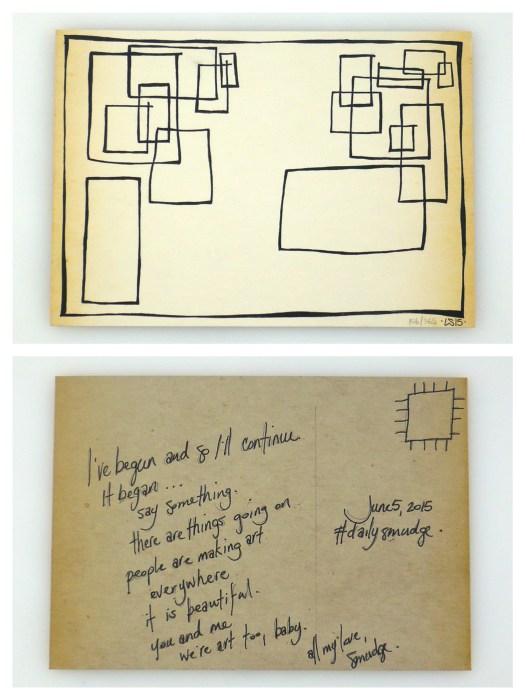 ·LS15·
I've begun and so I'll continue.
It began...
say something.
there are things going on..
people are making art
everywhere
it is beautiful.
you and me
we're art too, baby.
all my love,
smudge.
June 5, 2015
#dailysmudge.